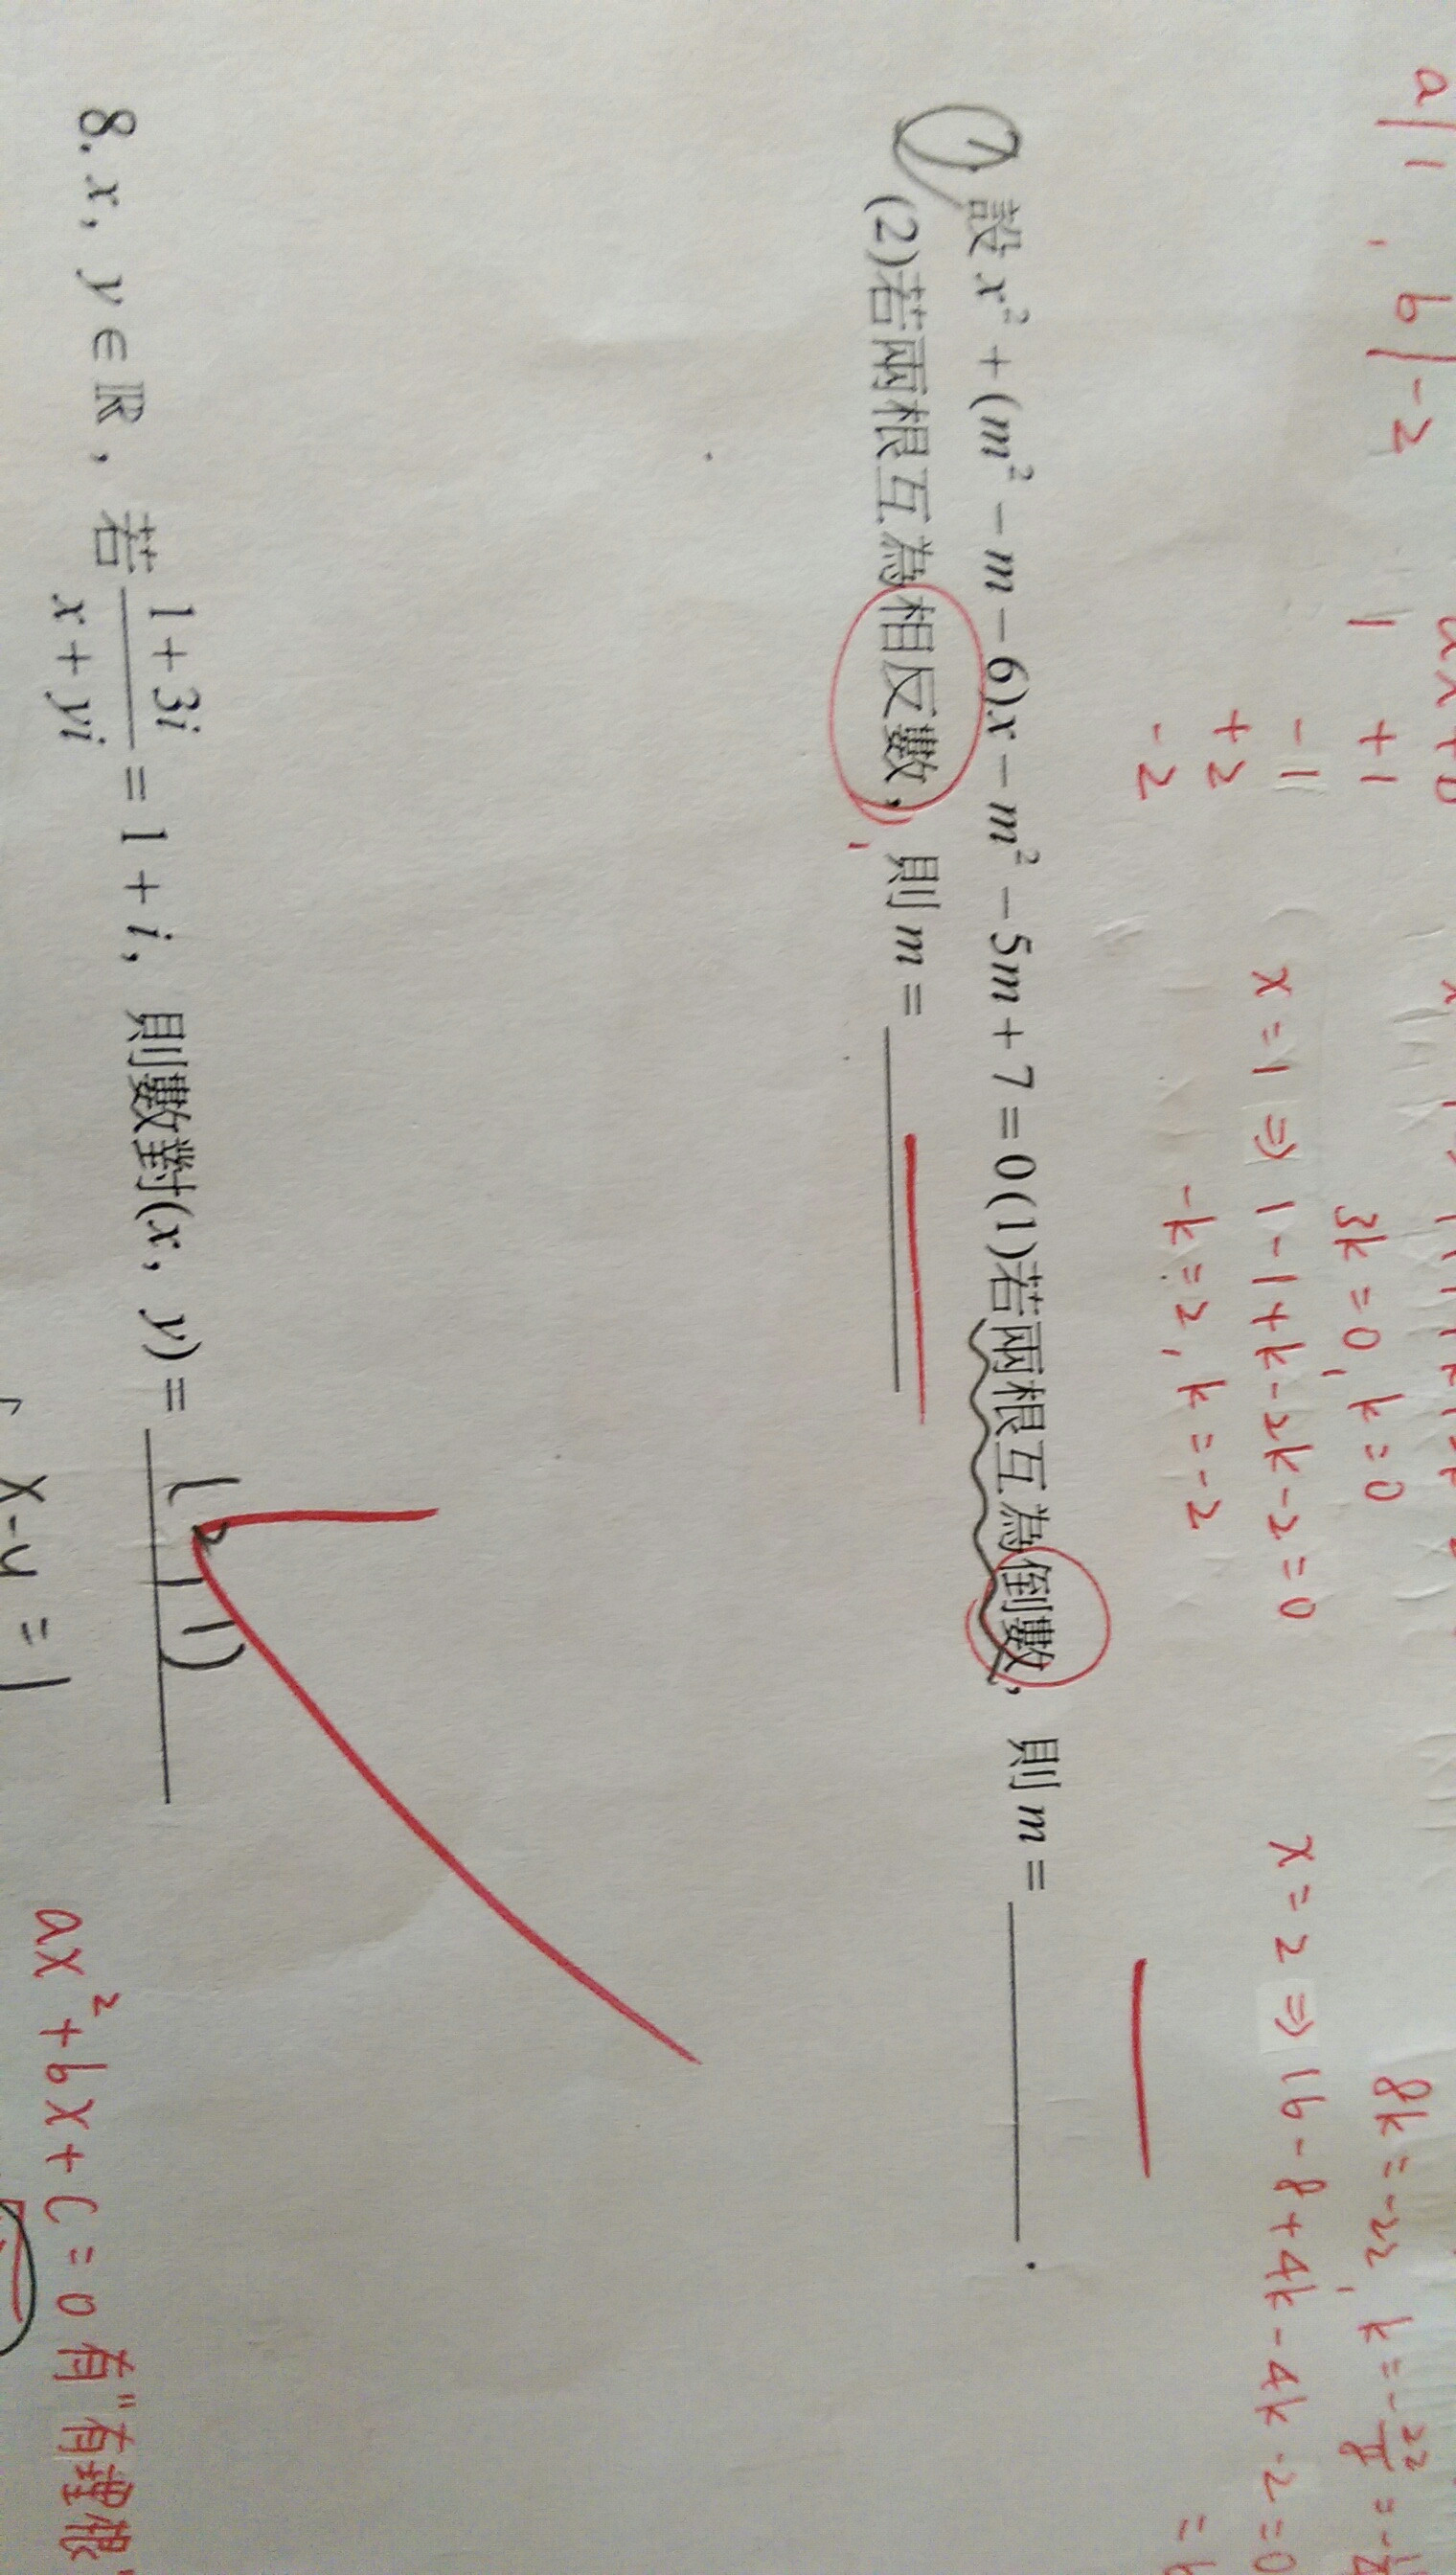 a|1, b|-2
1
+1
-1
+2
-2
3k=0, k=0
x=1 ⇒ 1-1+k-2k-2=0
-k=2, k=-2
8k=-22, k=-22/8=-
x=2 ⇒ 16-8+4k-4k-2=0
7. 設x²+(m²-m-6)x-m²-5m+7=0(1)若兩根互為倒數, 則m=________.
(2)若兩根互為相反數, 則m=________
8. x, y∈ℝ, 若(1+3i)/(x+yi)=1+i, 則數對(x, y)=(2, 1)
x-y=1
ax²+bx+c=0 有"有理根"